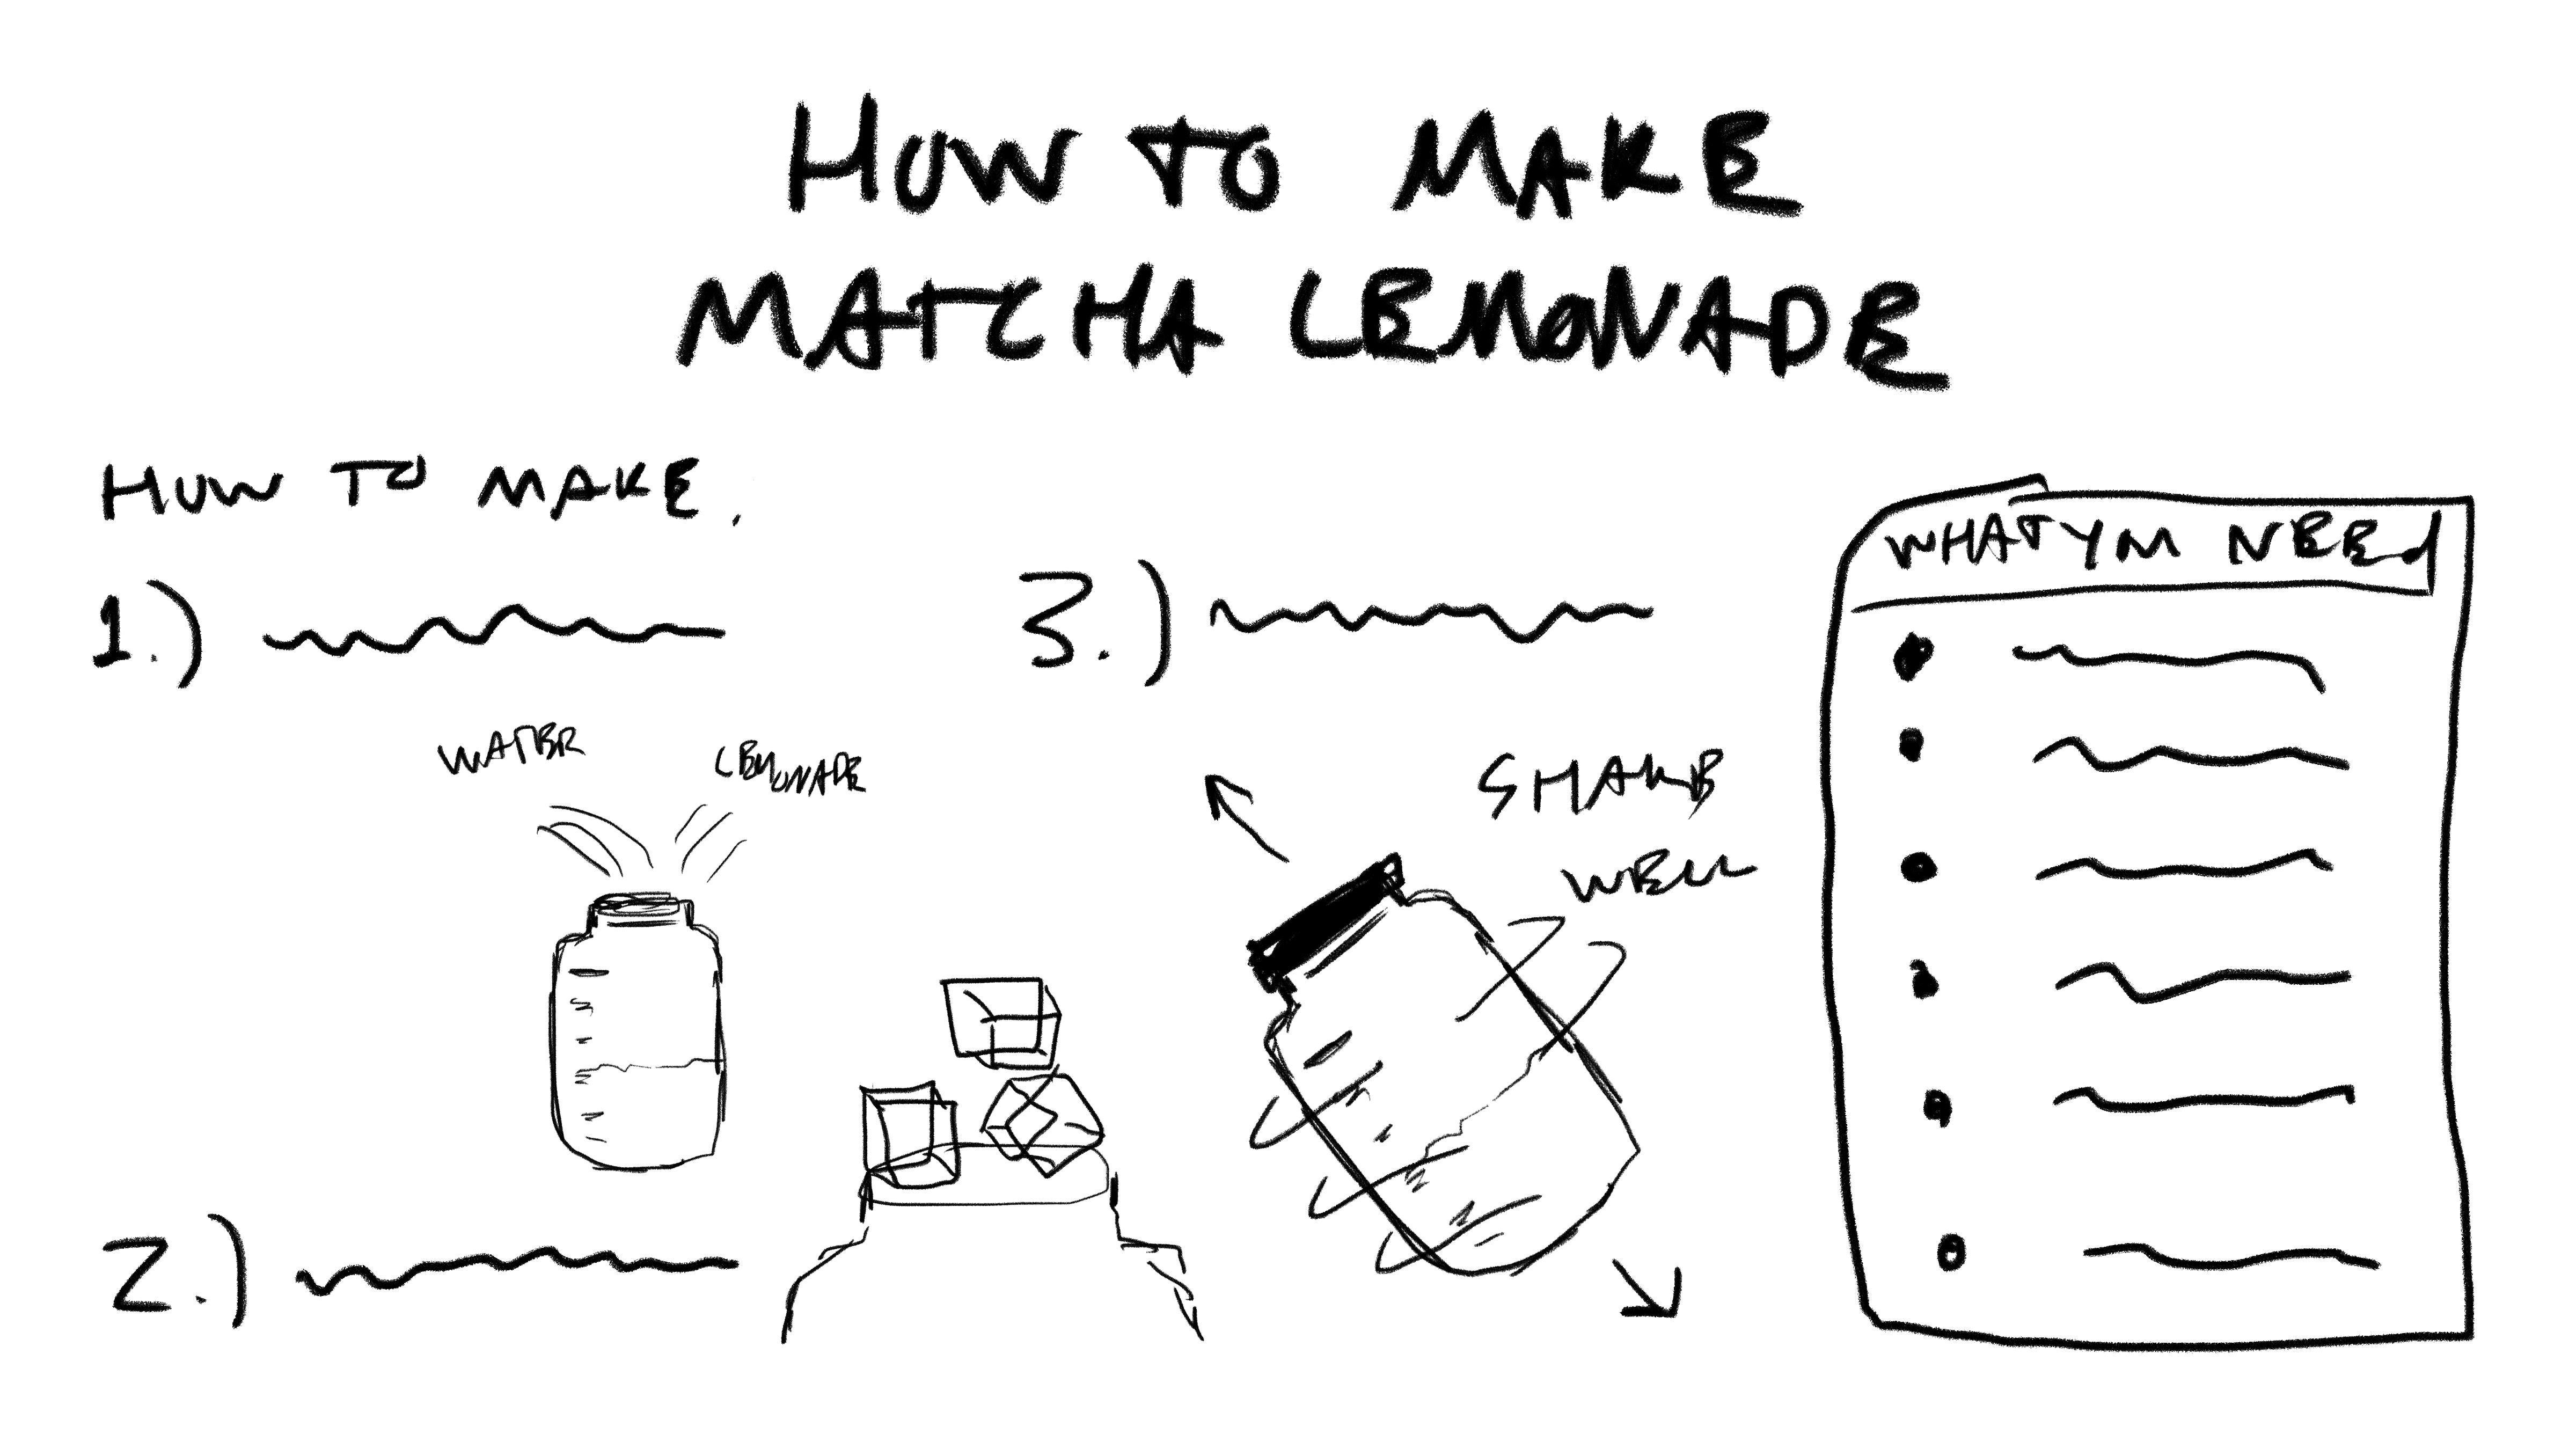 HOW TO MAKE
MATCHA LEMONADE
HOW TO MAKE.
1.)
WATER
LEMONADE
2.)
3.)
SHAKE
WELL
WHAT YOU NEED